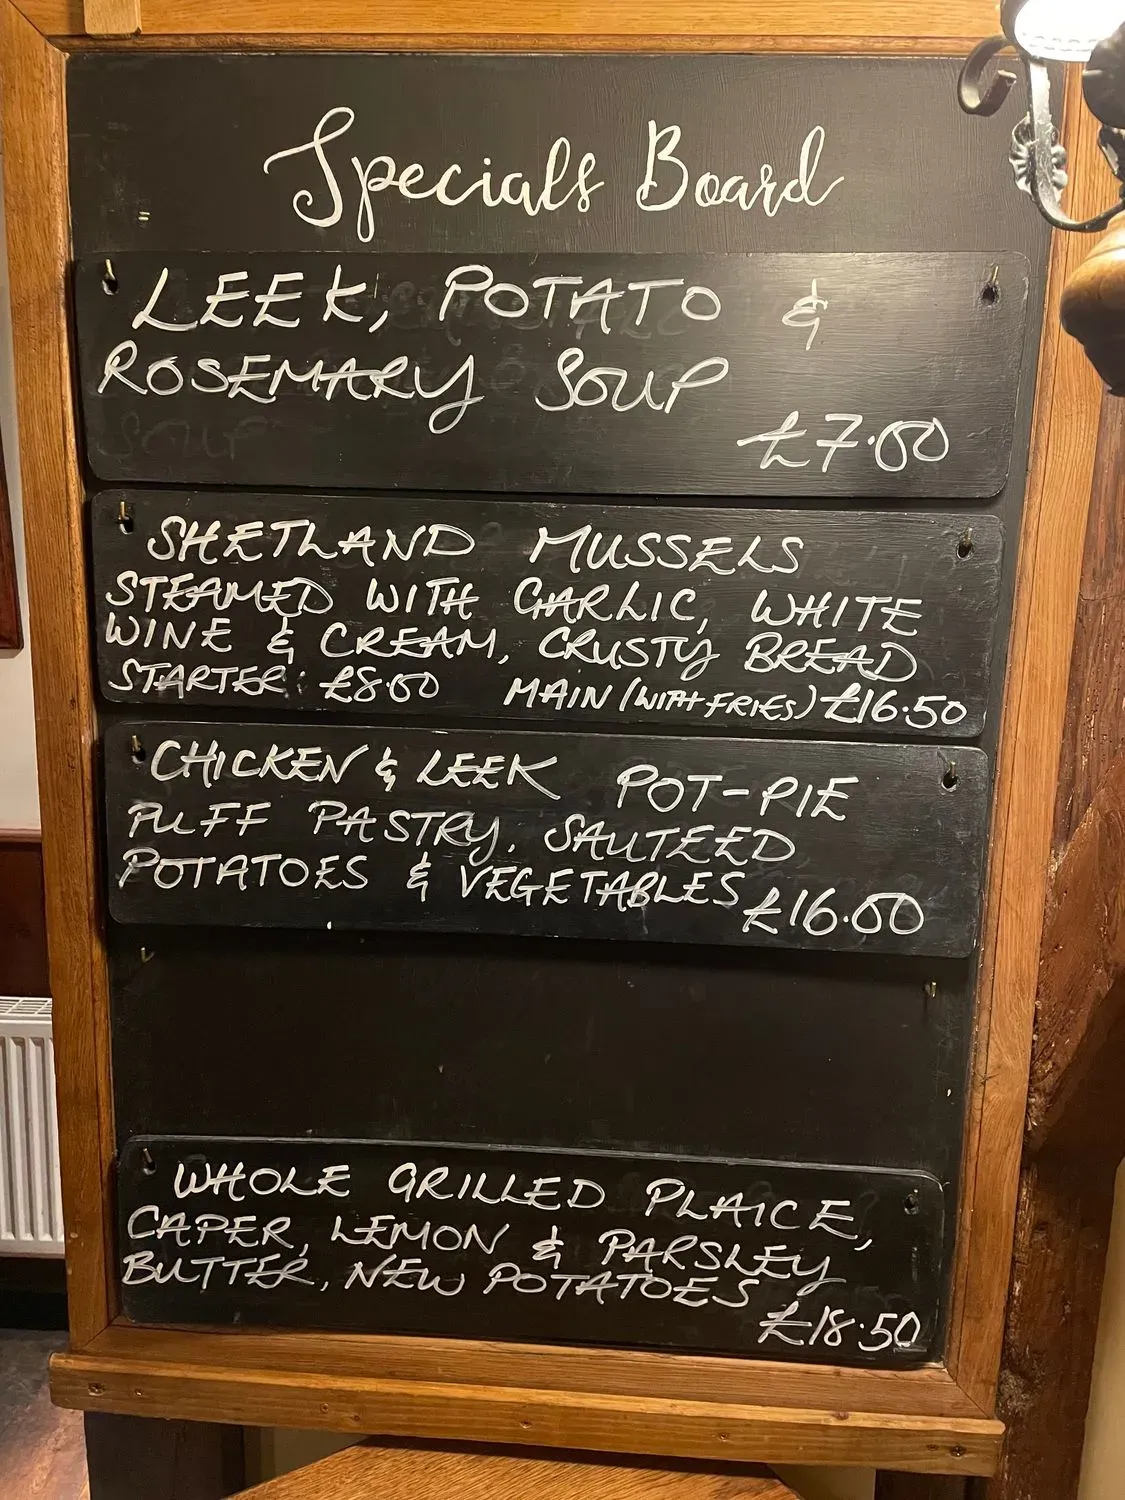 Specials Board
LEEK, POTATO &
ROSEMARY SOUP
£7.00
SHETLAND MUSSELS
STEAMED WITH GARLIC, WHITE
WINE & CREAM, CRUSTY BREAD
STARTER: £8.00 MAIN (WITH FRIES) £16.50
CHICKEN & LEEK POT-PIE
PUFF PASTRY, SAUTEED
POTATOES & VEGETABLES £16.00
WHOLE GRILLED PLAICE,
CAPER, LEMON & PARSLEY
BUTTER, NEW POTATOES
£18.50